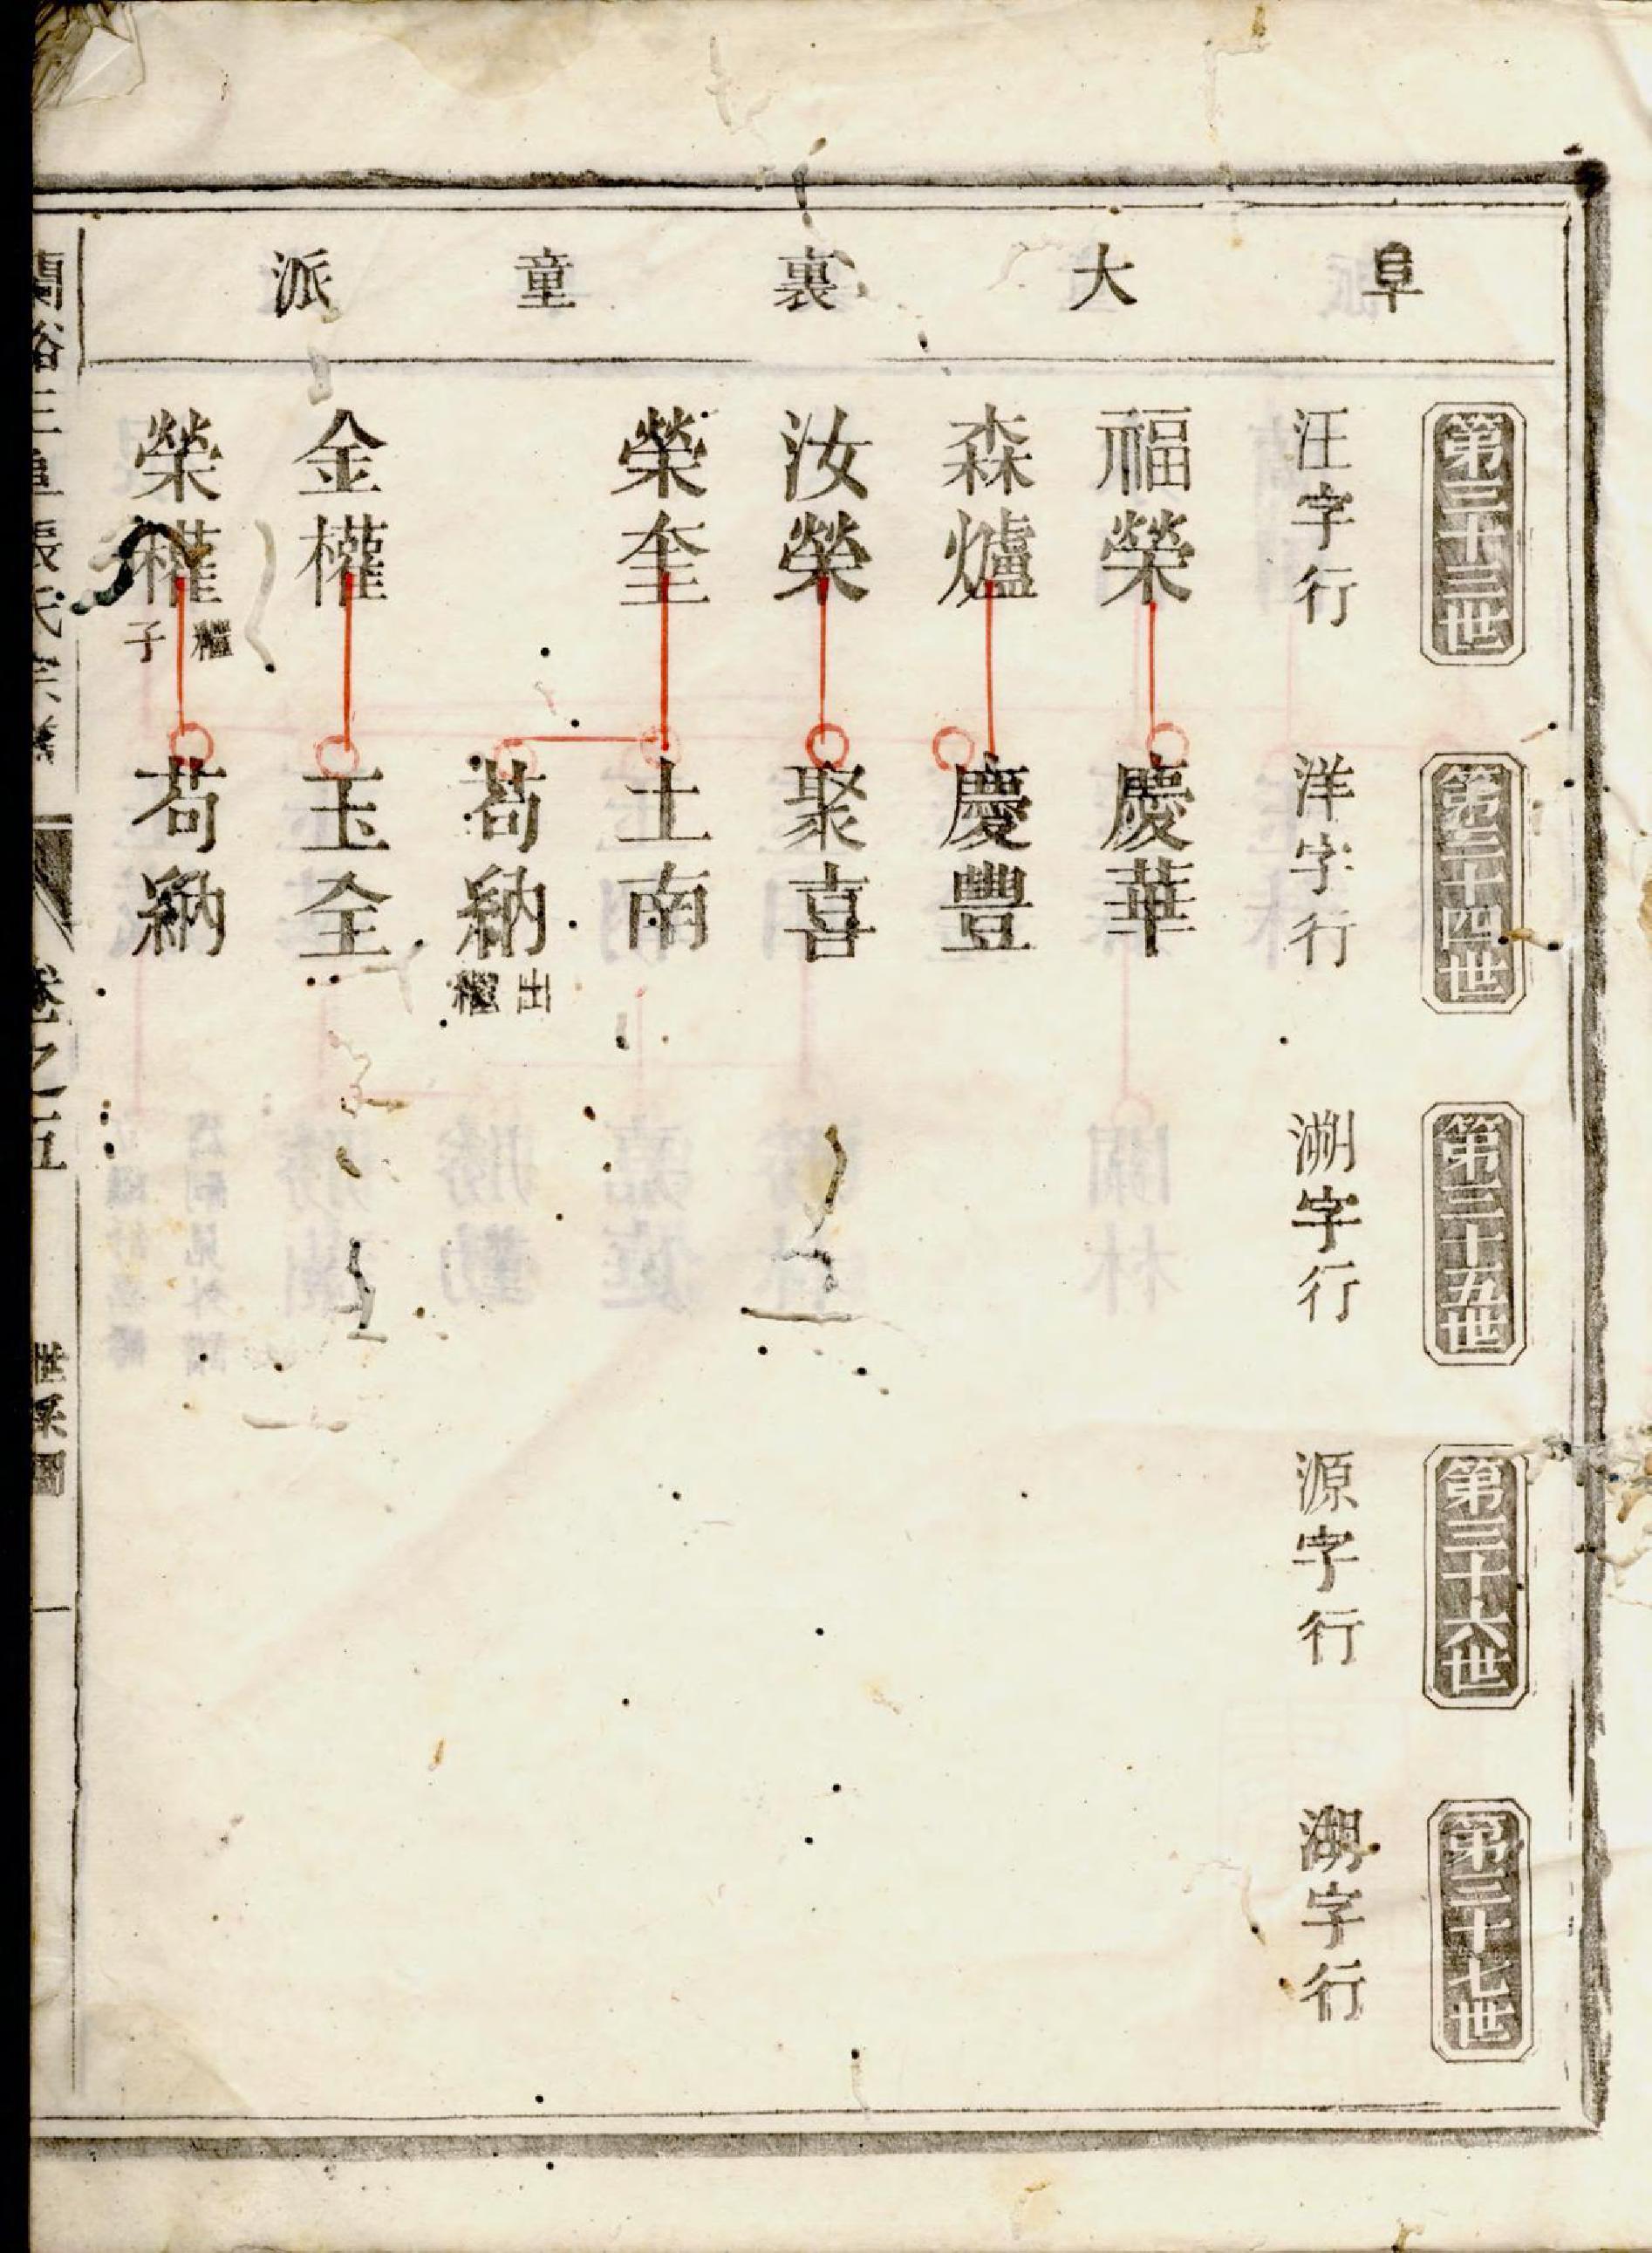 阜大裏童派
第三十三世
第三十四世
第三十五世
第三十六世
第三十七世
汪字行
洋字行
溯字行
源字行
湖字行
福榮
慶華
森爐
慶豐
汝榮
聚喜
榮奎
土南
苟納
出繼
金權
玉全
榮權
繼子
苟納
張氏宗譜
卷之五
世系圖
一